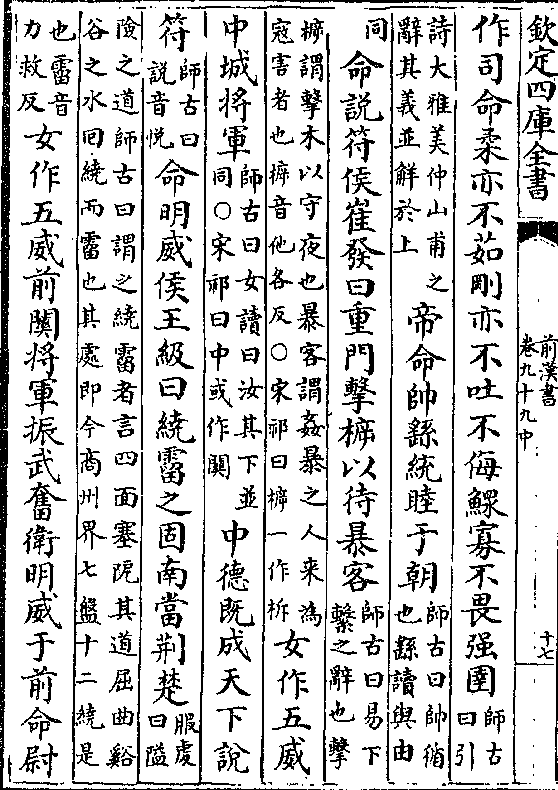 欽定四庫全書
前漢書
卷九十九中
十七
作司命柔亦不茹剛亦不吐不侮鰥寡不畏强圉師古曰引
詩大雅美仲山甫之辭其義並解於上帝命帥繇統睦于朝師古曰帥循也繇讀與由
同命說符侯崔發曰重門擊㯓以待暴客師古曰易下繫之辭也擊
㯓謂擊木以守夜也暴客謂姦暴之人来為宼害者也㯓音他各反○宋祁曰㯓一作柝女作五威
中城将軍師古曰女讀曰汝其下並同○宋祁曰中或作關中德既成天下說
符師古曰說音悦命明威侯王級曰繞霤之固南當荆楚服虔曰隘
險之道師古曰謂之繞霤者言四面塞阨其道屈曲谿谷之水囘繞而霤也其處即今商州界七盤十二繞是
也霤音力救反女作五威前關将軍振武奮衛明威于前命尉